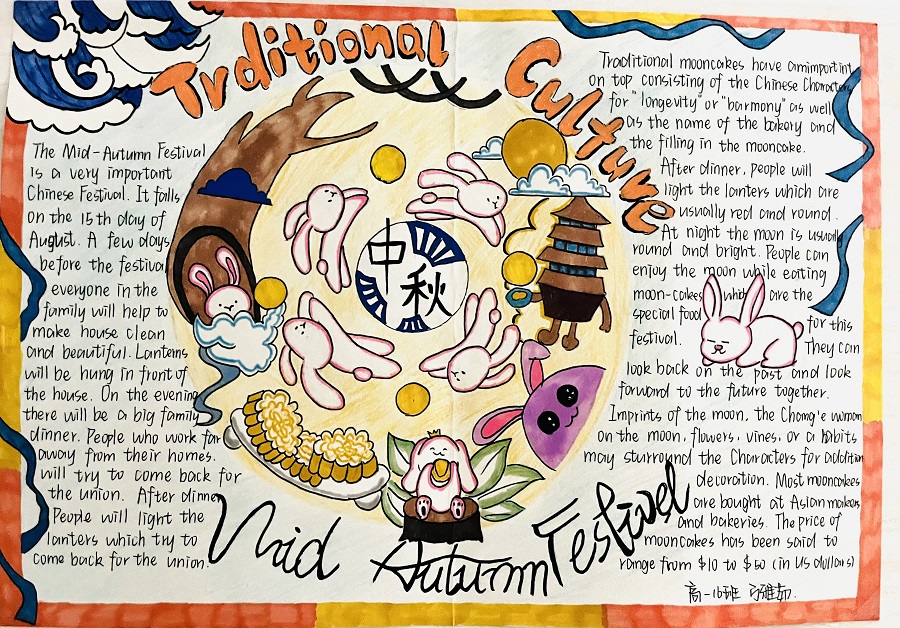 Trditional Culture
The Mid-Autumn Festival
is a very important
Chinese Festival. It falls
on the 15th day of
August. A few days
before the festival
everyone in the
family will help to
make house clean
and beautiful. Lanterns
will be hung in front of
the house. On the evening
there will be a big family
dinner. People who work far
away from their homes.
will try to come back for
the union. After dinner
People will light the
lanters which try to
come back for the union.
中秋
Traditional mooncakes have an
on top consisting of the Chinese Character
for "longevity" or "barmony" as well
as the name of the bakory and
the filling in the mooncake.
After dinner, people will
light the lanters which are
usually red and round.
At night the moon is usually
round and bright. People can
enjoy the moon while eating
moon-cakes which are the
special food for this
festival. They can
look back on the past and look
forward to the future together.
Imprints of the moon, the Chang'e woman
on the moon, flowers, vines, or a habits
may sturround the Characters for addition
decoration. Most mooncakes
are bought at Asian makers
and bakeries. The price of
mooncakes has been said to
range from $10 to $50 (in US dollars)
Mid Autumn Festivel
高一